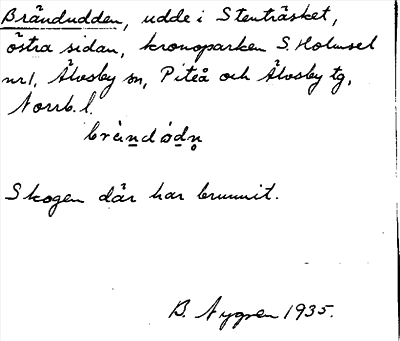 Brändudden, udde i Stenträsket,
östra sidan, kronoparken S. Holmsel
nr 1, Älvsby sn, Piteå och Älvsby tg,
Norrb. l.
brä̀ndòdn̥
Skogen där har brunnit.
B. Nygren 1935.